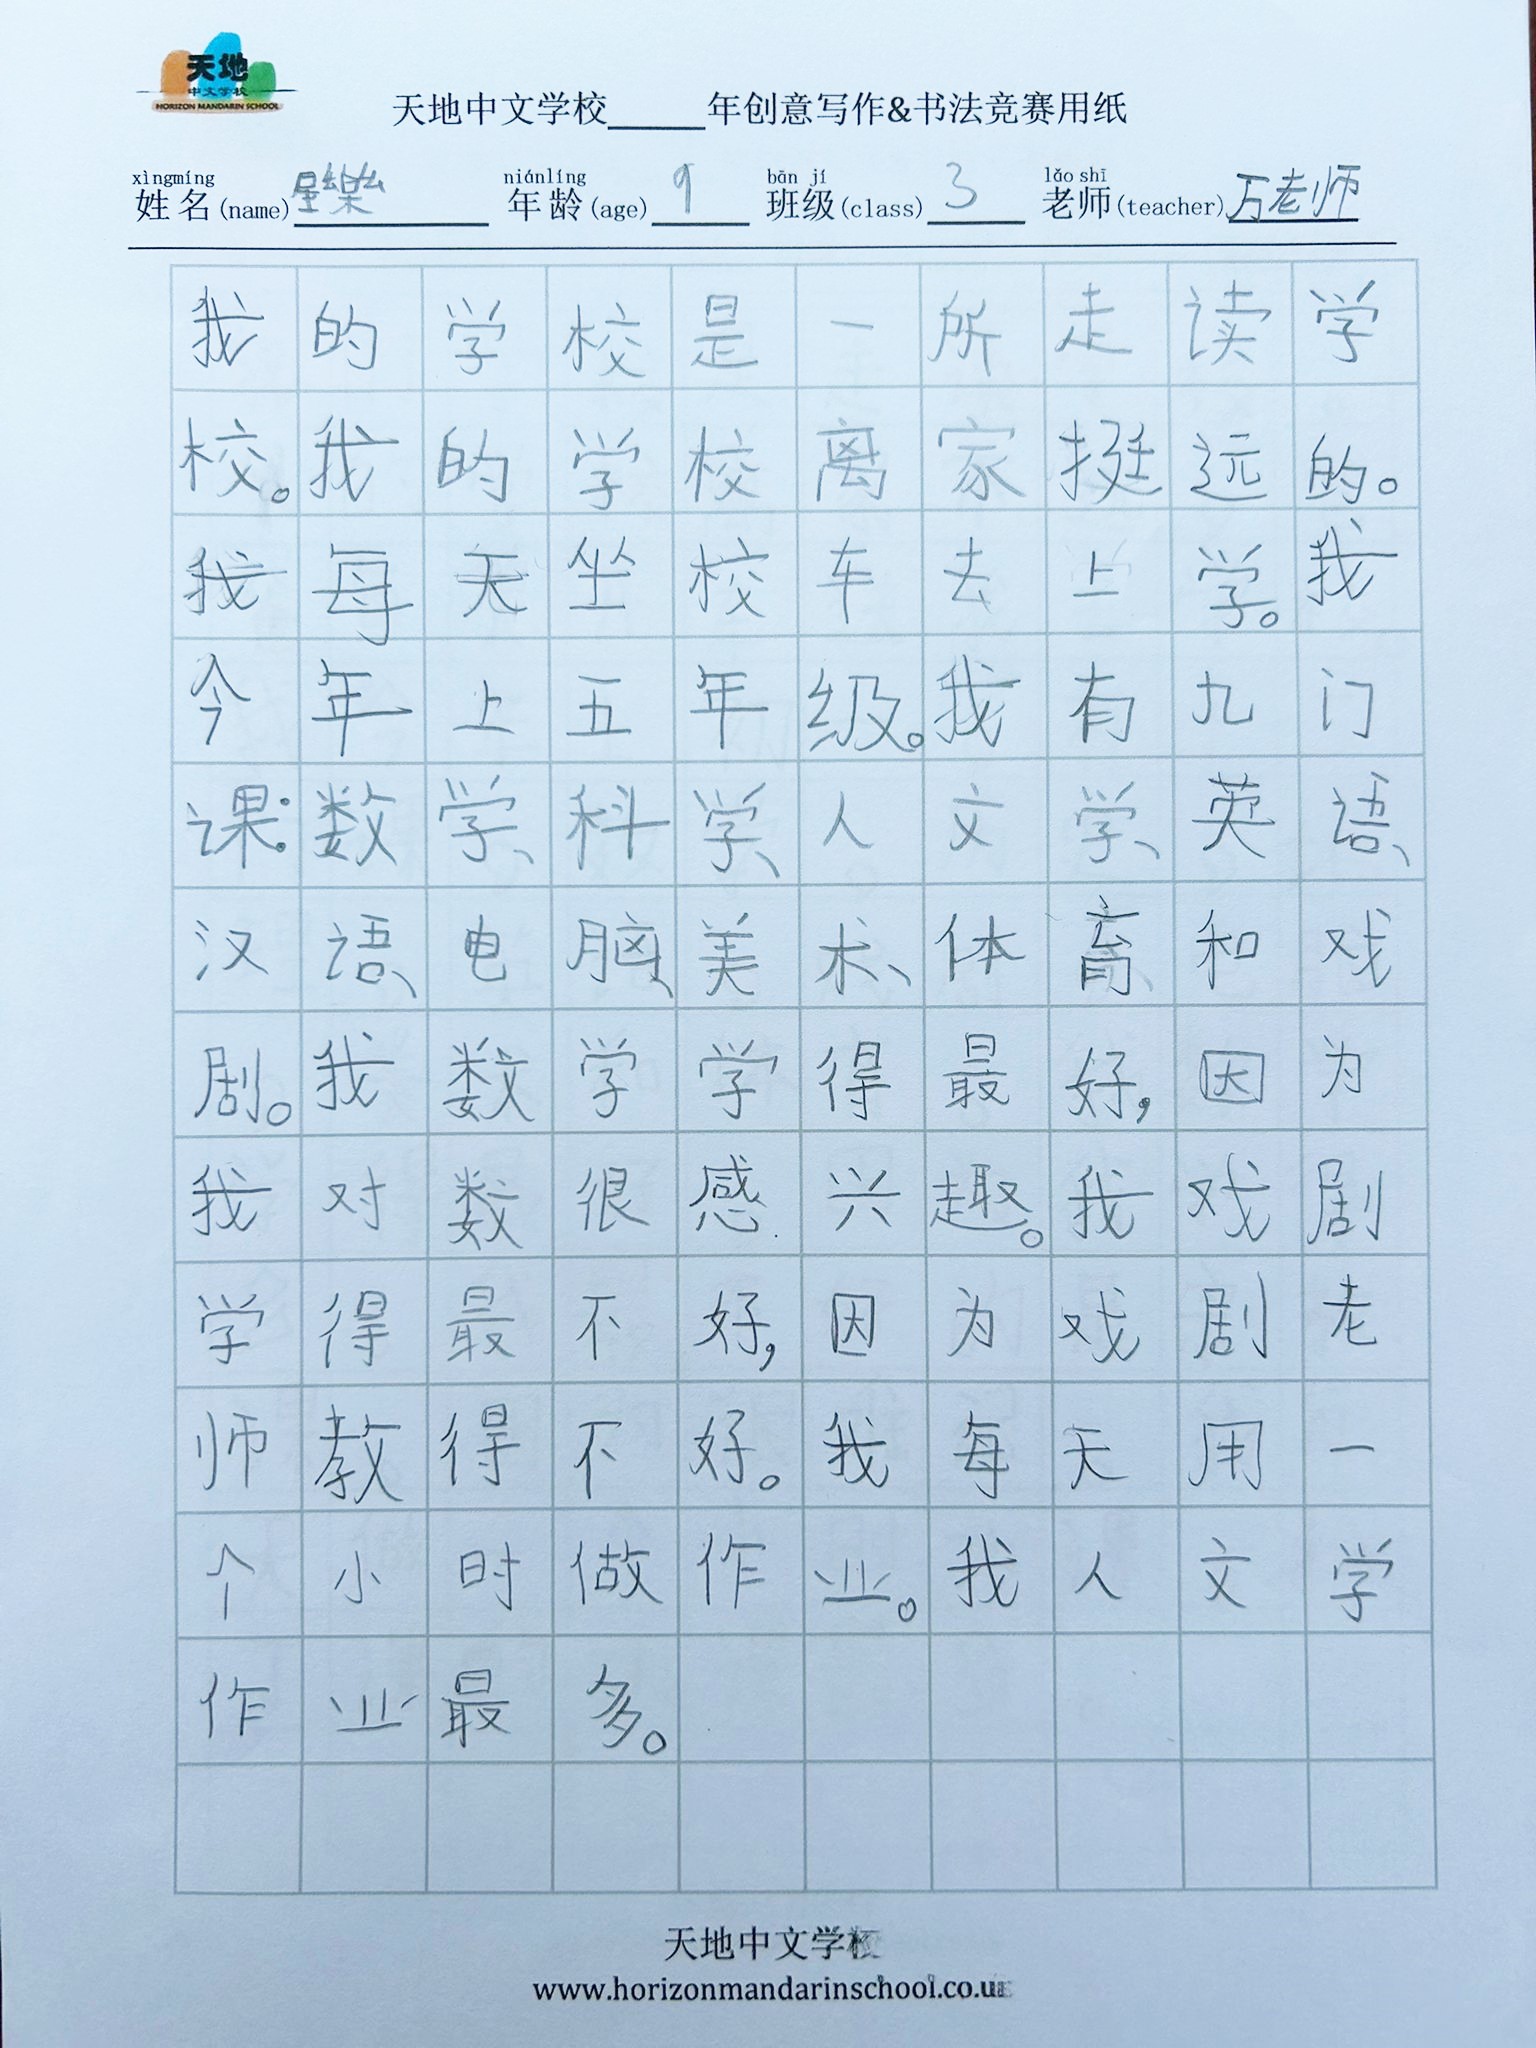 天地
中文学校
HORIZON MANDARIN SCHOOL
天地中文学校_____年创意写作&书法竞赛用纸
xìngmíng niánlíng bān jí lǎo shī
姓名(name) 星樂 年龄(age) 9 班级(class) 3 老师(teacher) 万老师
我的学校是一所走读学
校。我的学校离家挺远的。
我每天坐校车去上学。我
今年上五年级。我有九门
课:数学、科学、人文学、英语、
汉语、电脑、美术、体育和戏
剧。我数学学得最好,因为
我对数很感兴趣。我戏剧
学得最不好,因为戏剧老
师教得不好。我每天用一
个小时做作业。我人文学
作业最多。
天地中文学校
www.horizonmandarinschool.co.uk